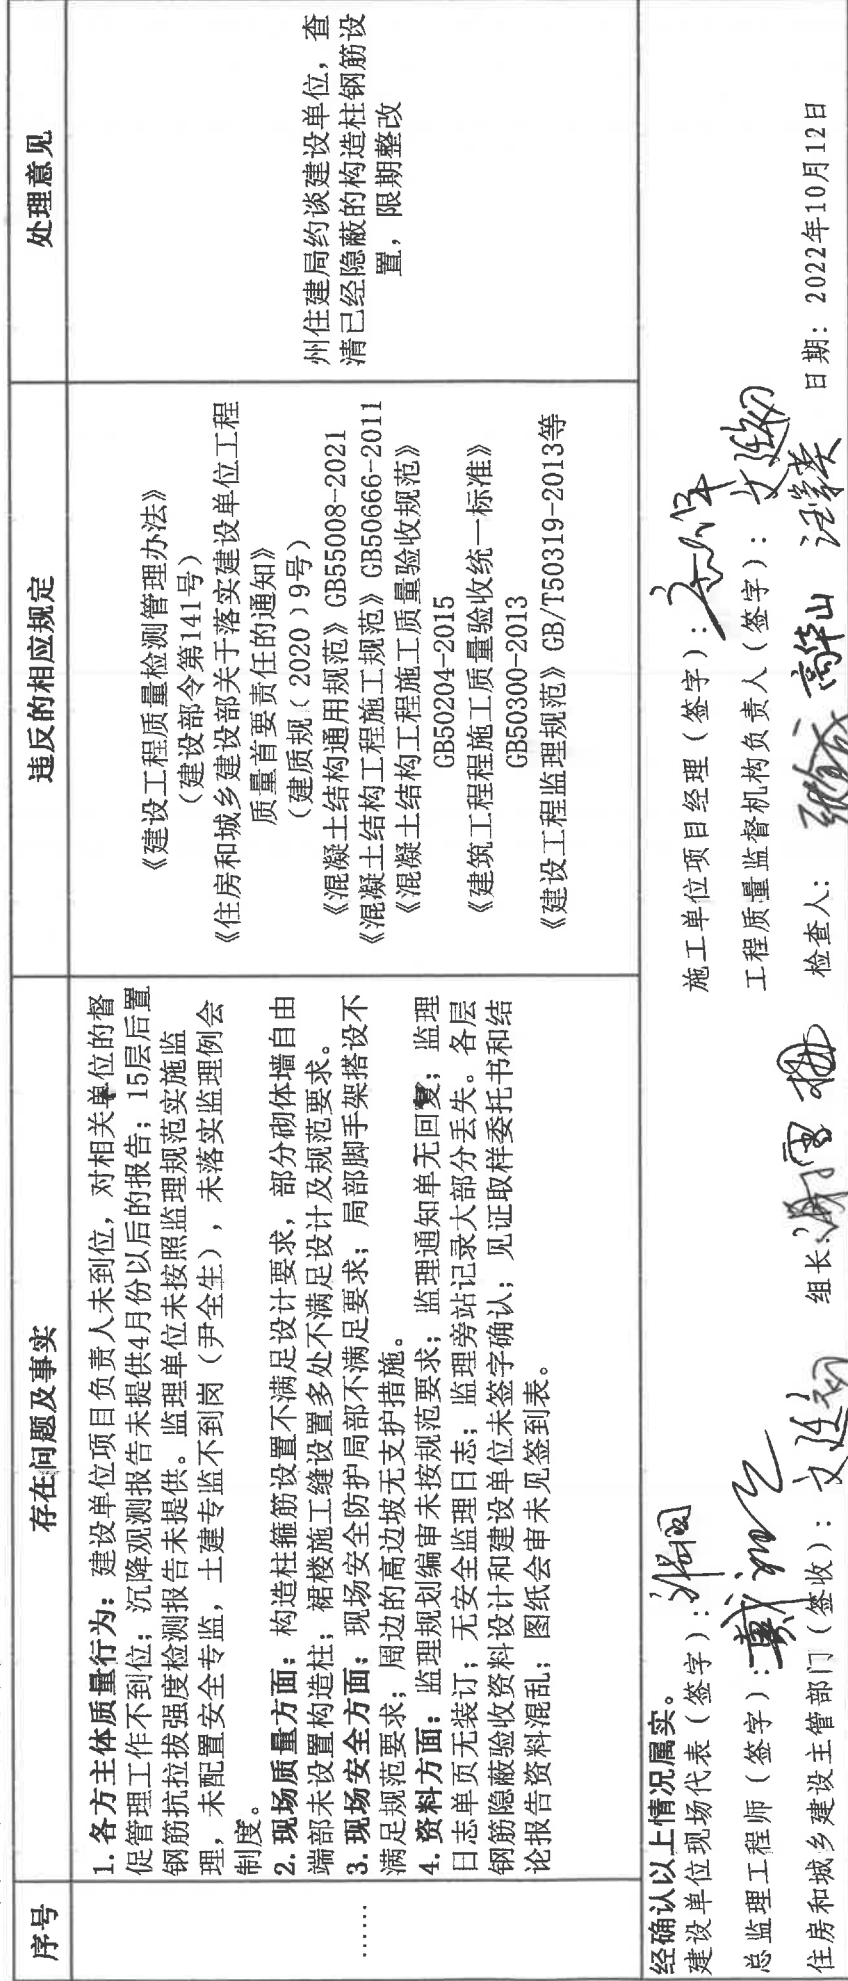 序号
存在问题及事实
违反的相应规定
处理意见
……
1. 各方主体质量行为：建设单位项目负责人未到位，对相关单位的督
促管理工作不到位；沉降观测报告未提供4月份以后的报告；15层后置
钢筋抗拉拔强度检测报告未提供。监理单位未按照监理规范实施监
理，未配置安全专监，土建专监不到岗（尹全生），未落实监理例会
制度。
2. 现场质量方面：构造柱箍筋设置不满足设计要求，部分砌体墙自由
端部未设置构造柱；裙楼施工缝设置多处不满足设计及规范要求。
3. 现场安全方面：现场安全防护局部不满足要求；局部脚手架搭设不
满足规范要求；周边的高边坡无支护措施。
4. 资料方面：监理规划编审未按规范要求；监理通知单无回复；监理
日志单页无装订；无安全监理日志；监理旁站记录大部分丢失。各层
钢筋隐蔽验收资料设计和建设单位未签字确认；见证取样委托书和结
论报告资料混乱；图纸会审未见签到表。
《建设工程质量检测管理办法》
（建设部令第141号）
《住房和城乡建设部关于落实建设单位工程
质量首要责任的通知》
（建质规﹝2020﹞9号）
《混凝土结构通用规范》GB55008-2021
《混凝土结构工程施工规范》GB50666-2011
《混凝土结构工程施工质量验收规范》
GB50204-2015
《建筑工程程施工质量验收统一标准》
GB50300-2013
《建设工程监理规范》GB/T50319-2013等
州住建局约谈建设单位，查
清已经隐蔽的构造柱钢筋设
置，限期整改
经确认以上情况属实。
建设单位现场代表（签字）：
施工单位项目经理（签字）：
总监理工程师（签字）：
工程质量监督机构负责人（签字）：
住房和城乡建设主管部门（签收）：
组长：
检查人： 高华山
日期：2022年10月12日